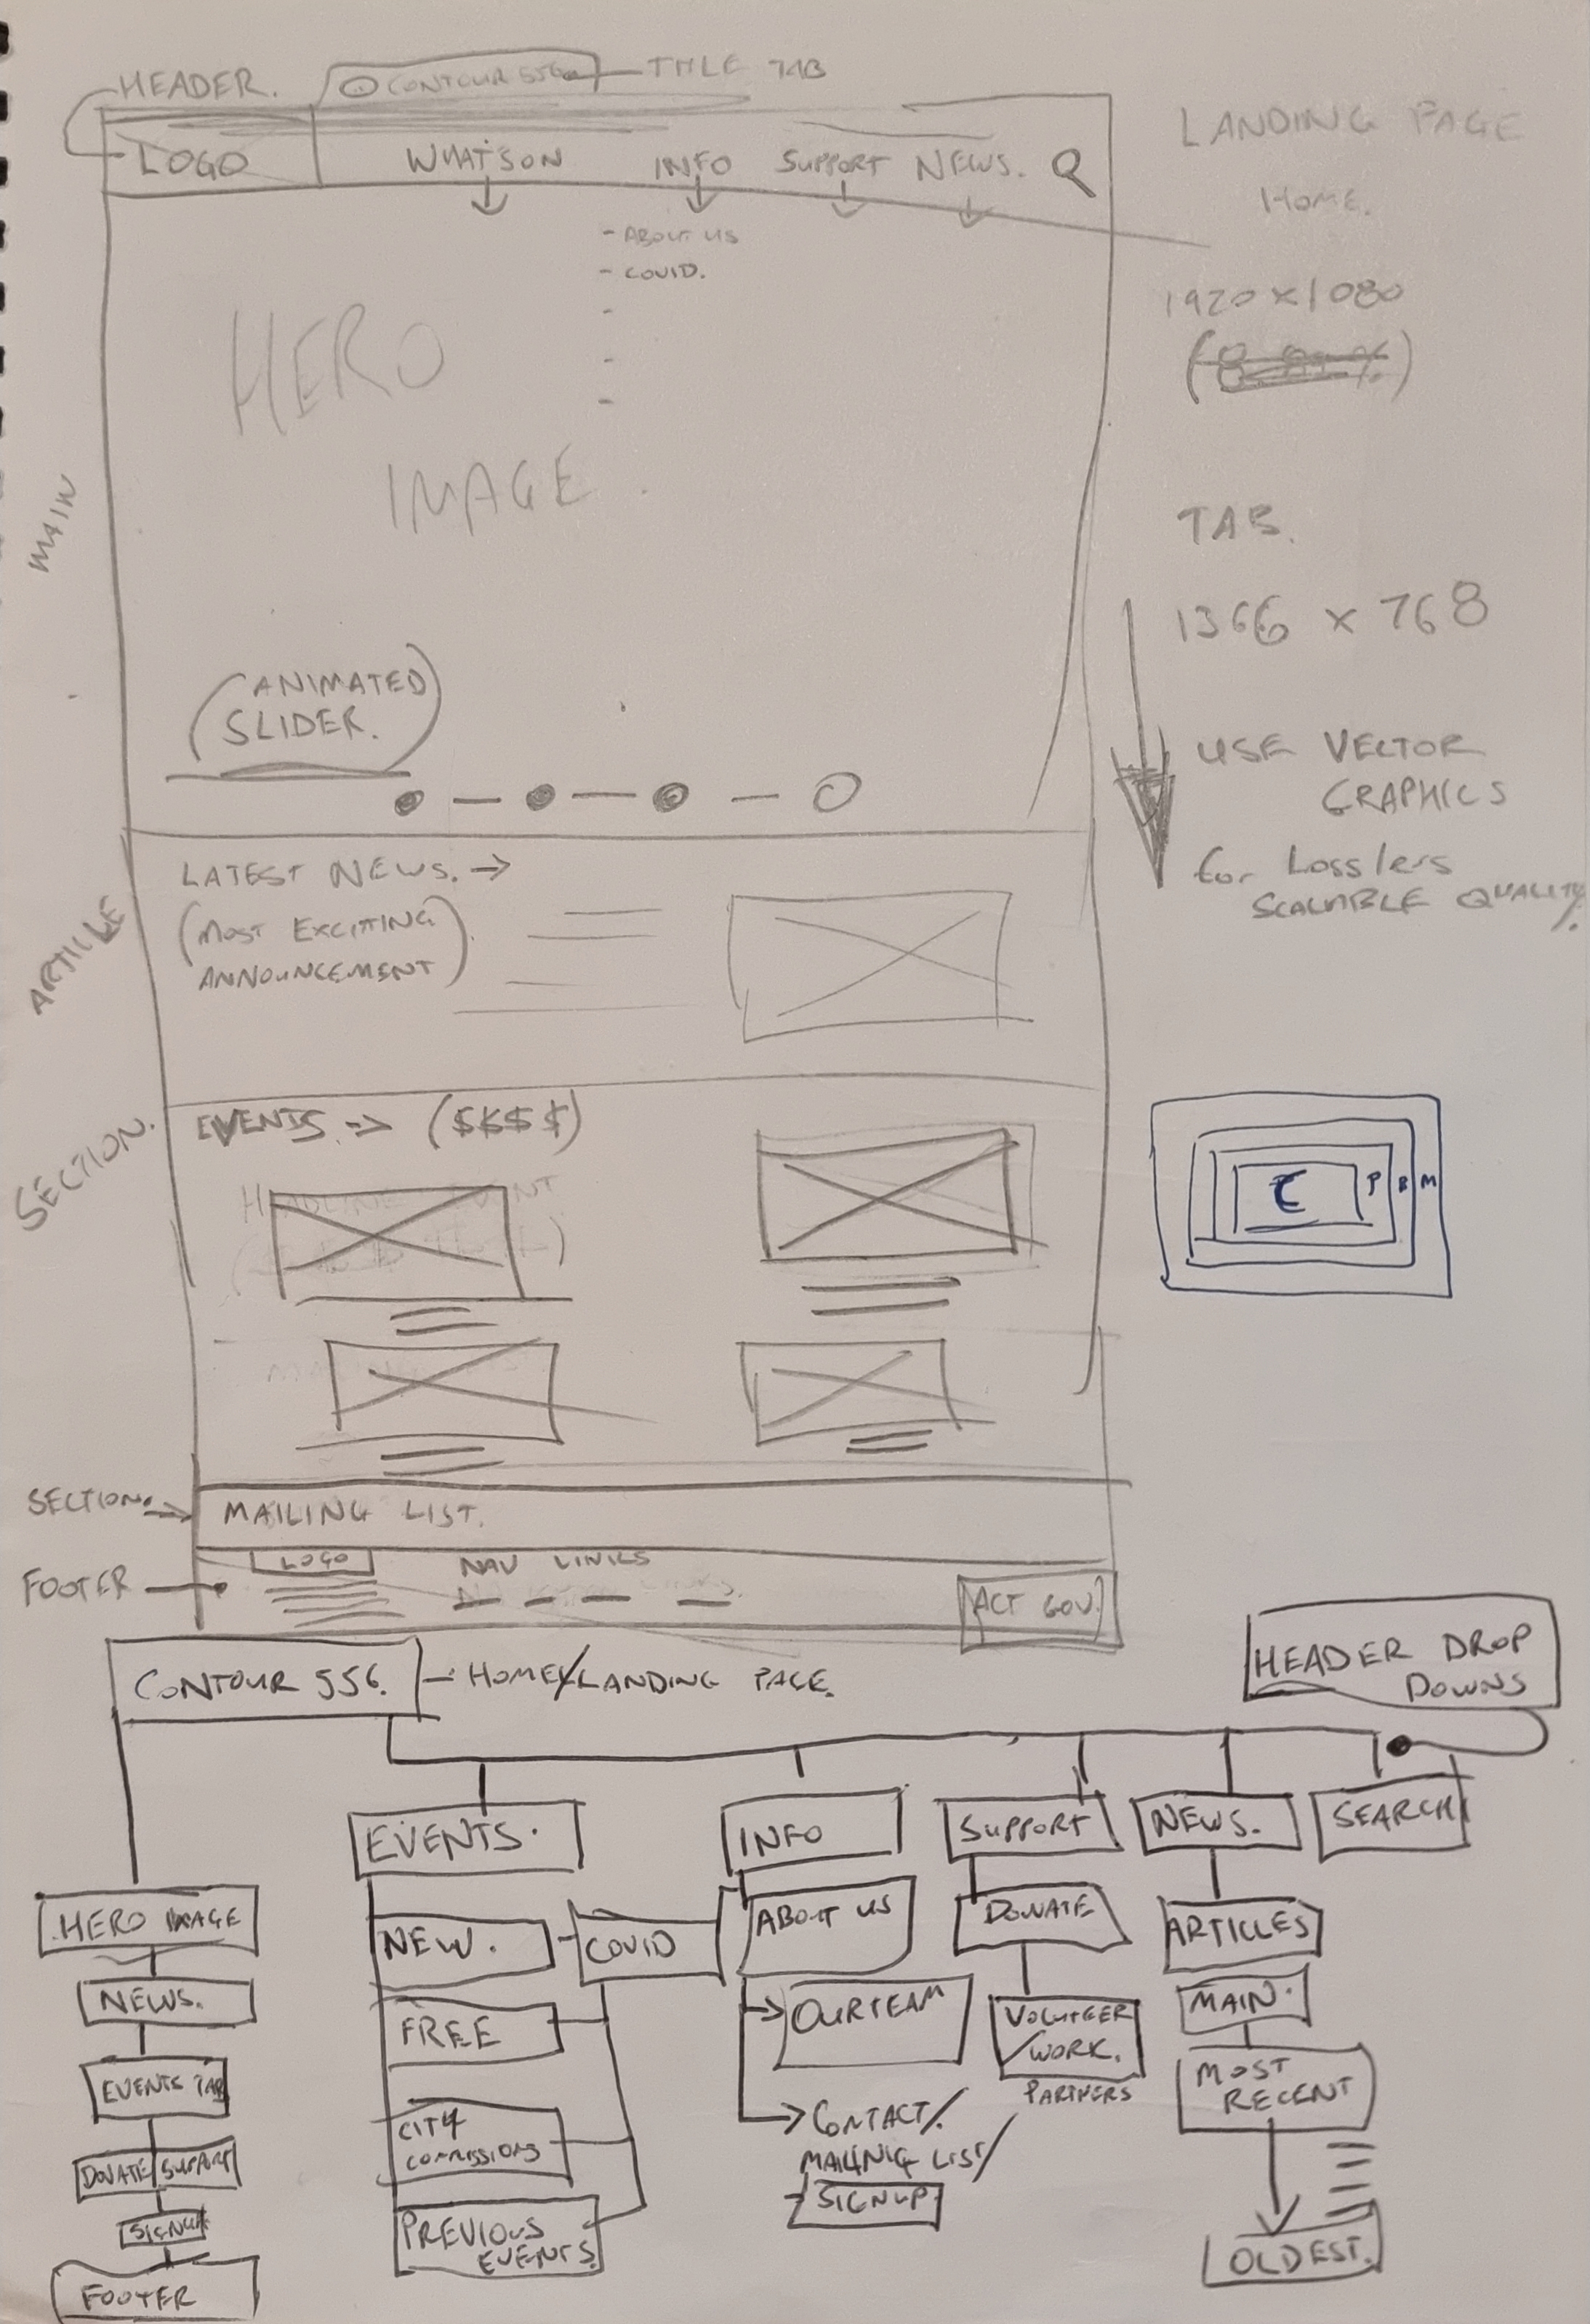 HEADER.
CONTOUR 556
TITLE TAB
LANDING PAGE
HOME.
LOGO
WHAT'S ON
INFO
SUPPORT
NEWS.
- ABOUT US
- COVID.
-
-
-
1920 x 1080
HERO
IMAGE.
MAIN
TAB.
1366 x 768
(ANIMATED
SLIDER.)
USE VECTOR
GRAPHICS
for Lossless
SCALABLE QUALITY.
LATEST NEWS. →
(MOST EXCITING
ANNOUNCEMENT)
ARTICLE
EVENTS. → ($$$$)
SECTION.
HEADLINE EVENT
C P B M
SECTION. →
MAILING LIST.
FOOTER
LOGO
NAV LINKS
ACT GOV.
CONTOUR 556. - HOME/LANDING PAGE.
HEADER DROP
DOWNS
EVENTS.
INFO
SUPPORT
NEWS.
SEARCH
HERO IMAGE
NEWS.
EVENTS TAB
DONATE/SUPPORT
SIGNUP
FOOTER
NEW.
COVID
FREE
CITY
COMMISSIONS
PREVIOUS
EVENTS.
ABOUT US
OUR TEAM
CONTACT/
MAILING LIST/
- SIGNUP.
DONATE
VOLUTEER
/WORK.
PARTNERS
ARTICLES
MAIN.
MOST
RECENT
OLDEST.